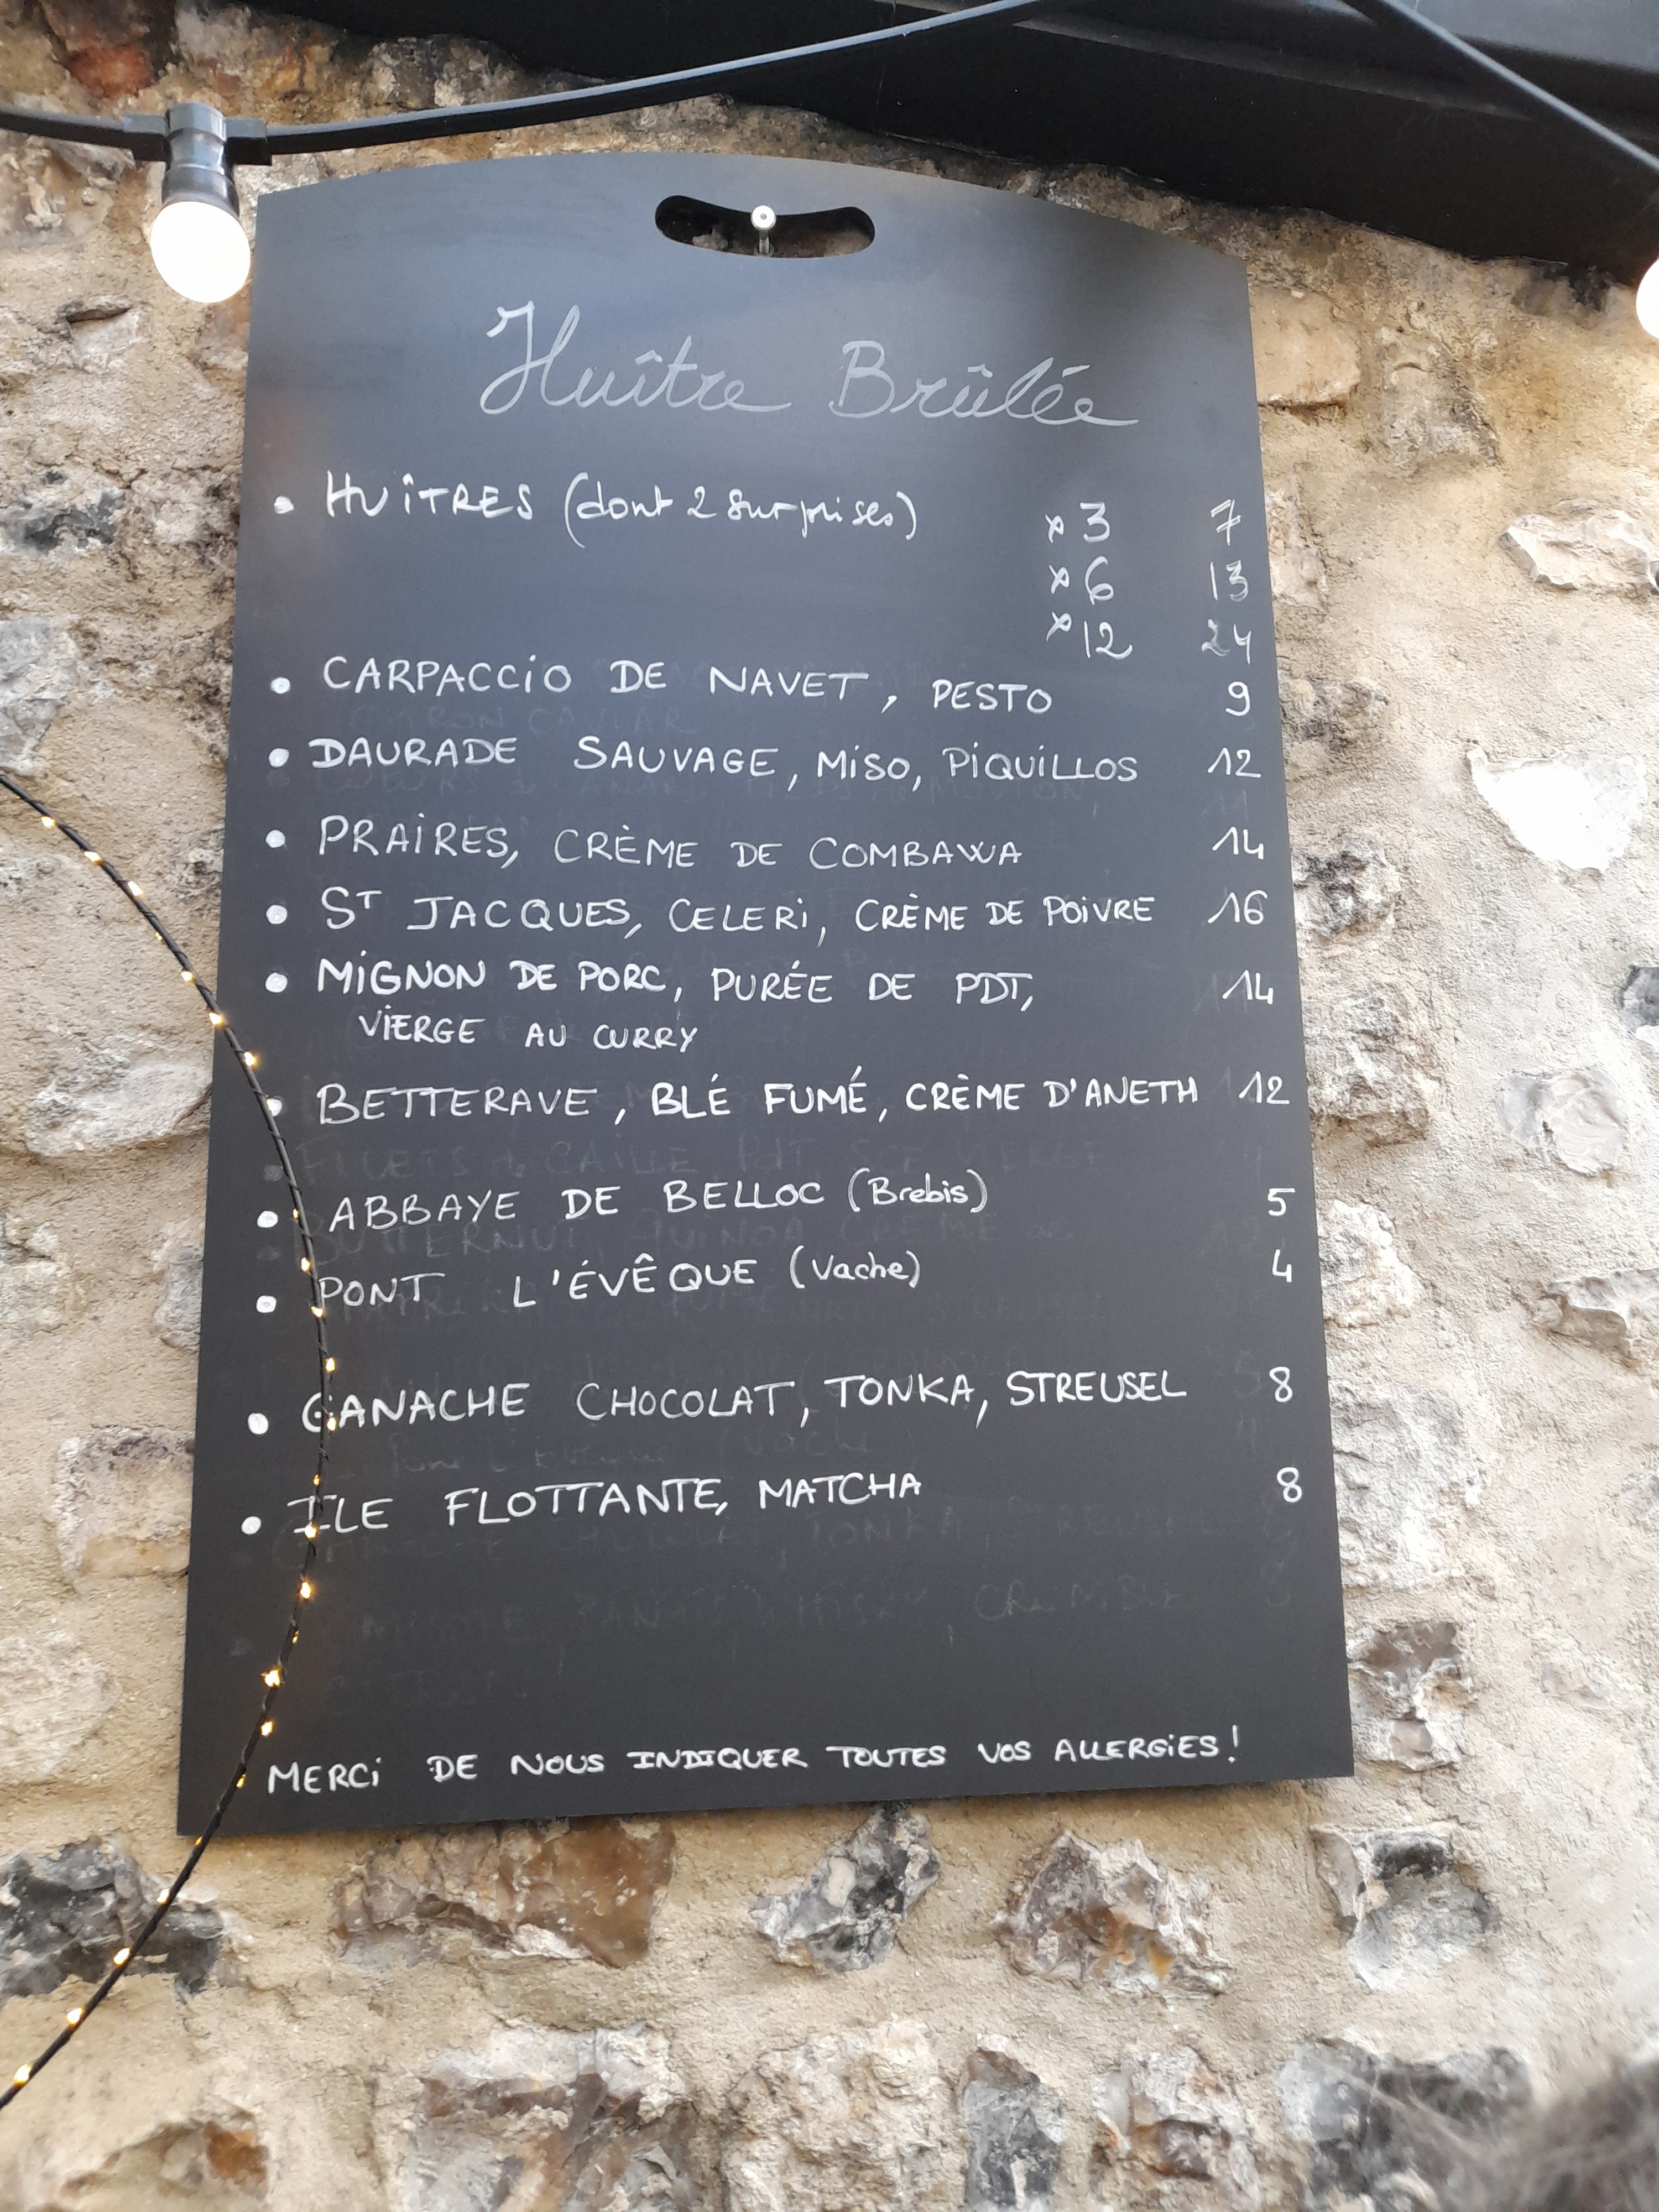 Huître Brûlée
• HUîTRES (dont 2 surprises) x 3 7
x 6 13
x 12 24
• CARPACCIO DE NAVET, PESTO 9
• DAURADE SAUVAGE, MISO, PIQUILLOS 12
• PRAIRES, CRÈME DE COMBAWA 14
• ST JACQUES, CELERI, CRÈME DE POIVRE 16
• MIGNON DE PORC, PURÉE DE PDT, 14
VIERGE AU CURRY
• BETTERAVE, BLÉ FUMÉ, CRÈME D'ANETH 12
• ABBAYE DE BELLOC (Brebis) 5
• PONT L'ÉVÊQUE (Vache) 4
• GANACHE CHOCOLAT, TONKA, STREUSEL 8
• ILE FLOTTANTE, MATCHA 8
MERCI DE NOUS INDIQUER TOUTES VOS ALLERGIES!